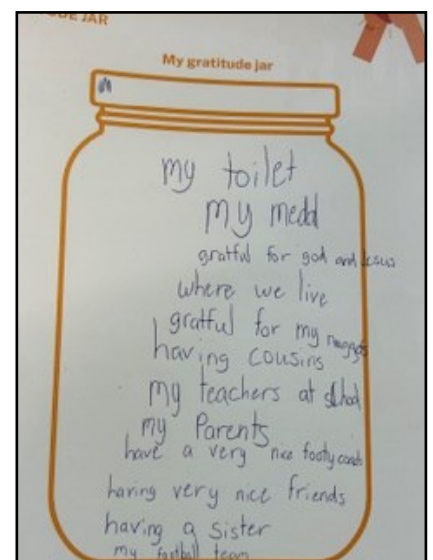 DE JAR
My gratitude jar
my toilet
my medd
gratful for god and Jesus
where we live
gratful for my
having cousins
my teachers at school
my Parents
have a very nice footy coach
having very nice friends
having a sister
my football team